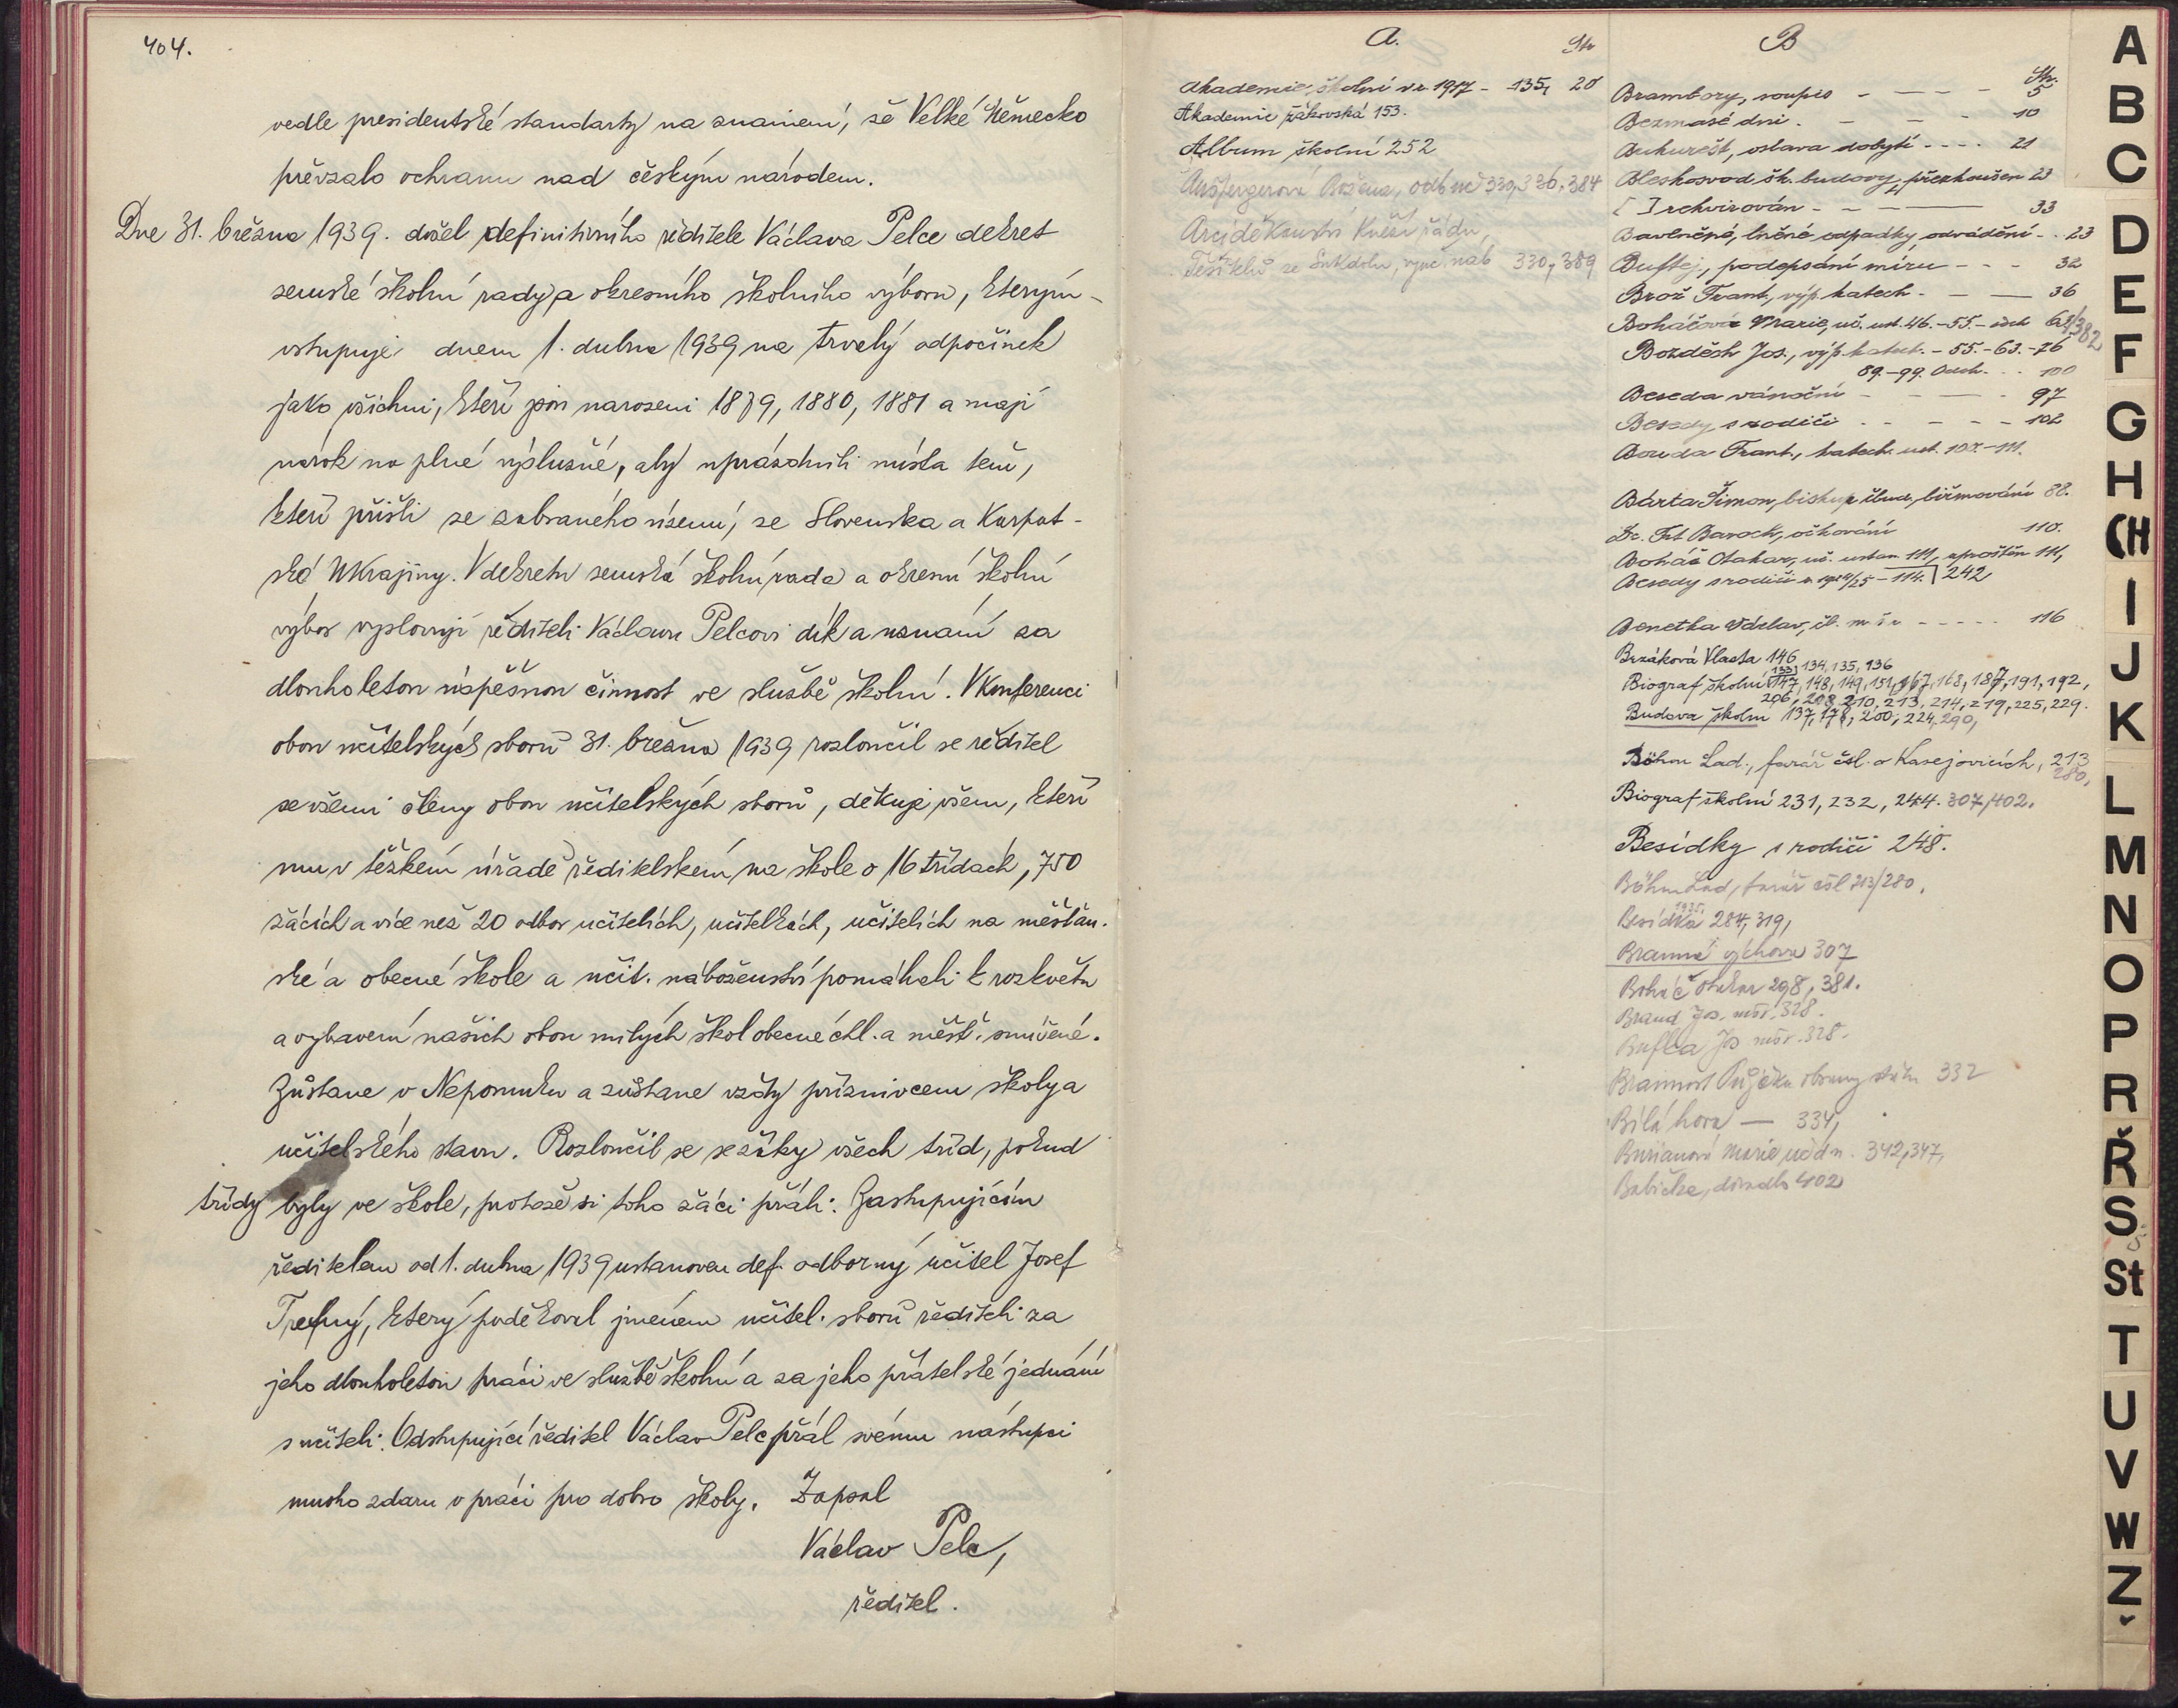 404.
vedle presidentské standarty na znamení, že Velké Německo
převzalo ochranu nad českým národem.
Dne 31. března 1939. došel definitivního ředitele Václava Pelce dekret
zemské školní rady a okresního školního výboru, kterým
vstupuje dnem 1. dubna 1939 na trvalý odpočinek
jako všichni, kteří jsou narozeni 1879, 1880, 1881 a mají
nárok na plné výslužné, aby uprázdnili místa těm,
kteří přišli ze zabraného území, ze Slovenska a Karpat-
ské Ukrajiny. V dekretu zemská školní rada a okresní školní
výbor vyslovují řediteli Václavu Pelcovi dík a uznání za
dlouholetou úspěšnou činnost ve službě školní. V konferenci
obou učitelských sborů 31. března 1939 rozloučil se ředitel
se všemi členy obou učitelských sborů, děkuje všem, kteří
mu v těžkém úřadě ředitelském na škole o 16 třídách, 750
žácích a více než 20 odbor učitelích, učitelkách, učitelích na měšťan-
ské a obecné škole a učit. náboženství pomáhali k rozkvětu
a vybavení našich obou milých škol obecné chl. a měšť. smíšené.
Zůstane v Nepomuku a zůstane vždy příznivcem školy a
učitelského stavu. Rozloučil se se žáky všech tříd, pokud
třídy byly ve škole, protože si toho žáci přáli. Zastupujícím
ředitelem od 1. dubna 1939 ustanoven def. odborný učitel Josef
který poděkoval jménem učitel. sborů řediteli za
jeho dlouholetou práci ve službě školní a za jeho přátelské jednání
s učiteli. Odstupující ředitel Václav Pelc přál svému nástupci
mnoho zdaru v práci pro dobro školy. Zapsal
Václav Pelc,
ředitel.
A. Str
Akademie, školní v r. 1917 - 135, 20
Akademie žákovská 153.
Album školní 252
Božena, odb. uč 330, 336, 384
Arciděkanství
330, 389
B Str.
Brambory, soupis - - - - 5
Bezmasé dni. - - - 10
Bukurešť, oslava dobytí - - - - 21
Bleskosvod šk. budovy, přezkoušen 23
[ ] rekvirován - - - 33
Bavlněné, lněné odpadky, odvádění - . 23
podepsání míru - - - 32
Brož Frant., výp. katech - - - 36
Boháčová Marie, uč. ust. 46. - 55. - 62/382
Bozděch Jos., výp. katech. - 55. - 63. - 76
89. - 99. Odch. . . 100
Beseda vánoční - - - - 97
Besedy s rodiči . - - - - 102
Bouda Frant., katech. ust. 107. - 111.
Bárta Šimon, biskup čbud., biřmování 88.
očkování 110.
Boháč Otakar, uč. ustan 111, zproštěn 111,
Besedy s rodiči - 114. 242
Benetka Václav, čl. m š r - - - - - 116
Brzáková Vlasta 146
133, 134, 135, 136
Biograf školní 147, 148, 149, 151, 167, 168, 187, 191, 192,
206, 208, 210, 213, 214, 219, 225, 229.
Budova školní 137, 178, 200, 224, 290,
Böhm Lad., farář čsl. v Kasejovicích, 213
280,
Biograf školní 231, 232, 244. 307, 402.
Besídky s rodiči 248.
Böhm Lad, farář čsl 213/280.
1935,
Besídka 284, 319,
Branná výchova 307
Boháč Otakar 298, 381.
Brand Jos. mšr. 328.
Jos mšr. 328.
Brannost Půjčka obrany státu 332
Bílá hora — 334,
Burianová Marie 342, 347,
Babička, divadlo 402
A
B
C
D
E
F
G
H
CH
I
J
K
L
M
N
O
P
R
Ř
S
Š
St
T
U
V
W
Z